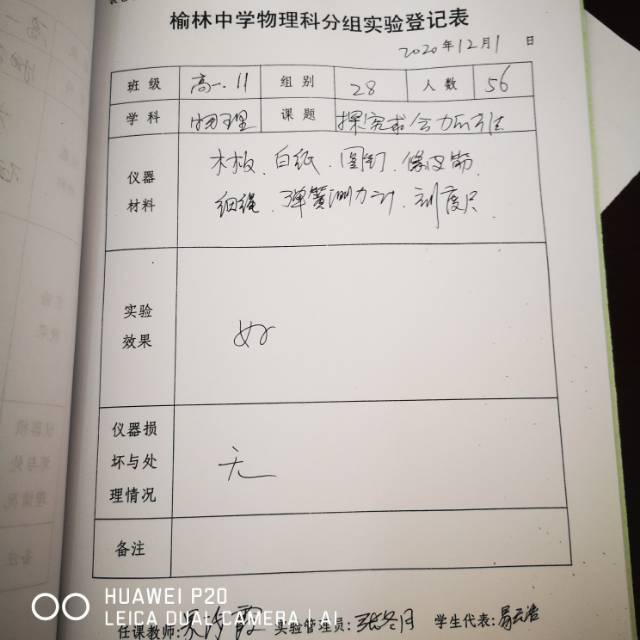 榆林中学物理科分组实验登记表
2020年12月1日
班级 高一.11 组别 28 人数 56
学科 物理 课题 探究求合力的方法
仪器材料 木板.白纸.图钉.橡皮筋
细绳.弹簧测力计.刻度尺
实验效果 好
仪器损坏与处理情况 无
备注
任课教师: 实验管理员: 学生代表:
HUAWEI P20
LEICA DUAL CAMERA | AI